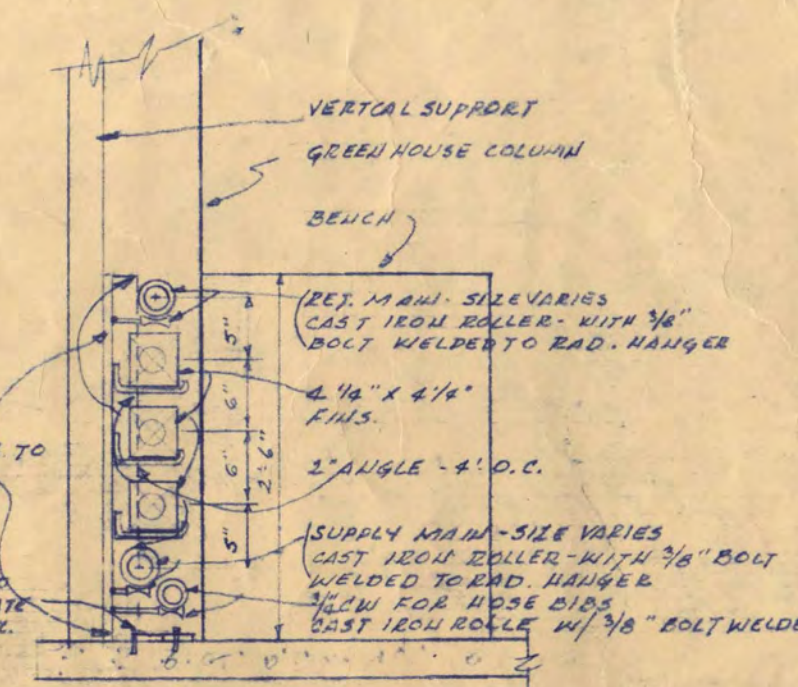 VERTCAL SUPPORT
GREEN HOUSE COLUMN
BENCH
RET. MAIN - SIZE VARIES
CAST IRON ROLLER - WITH 3/8"
BOLT WELDED TO RAD. HANGER
5"
4 1/4" X 4 1/4"
FINS.
6"
TO
2"ANGLE - 4' O.C.
6"
2'-6"
5"
SUPPLY MAIN - SIZE VARIES
CAST IRON ROLLER - WITH 3/8" BOLT
WELDED TO RAD. HANGER
3/4" CW FOR HOSE BIBS
CAST IRON ROLLE W/ 3/8" BOLT WELDE